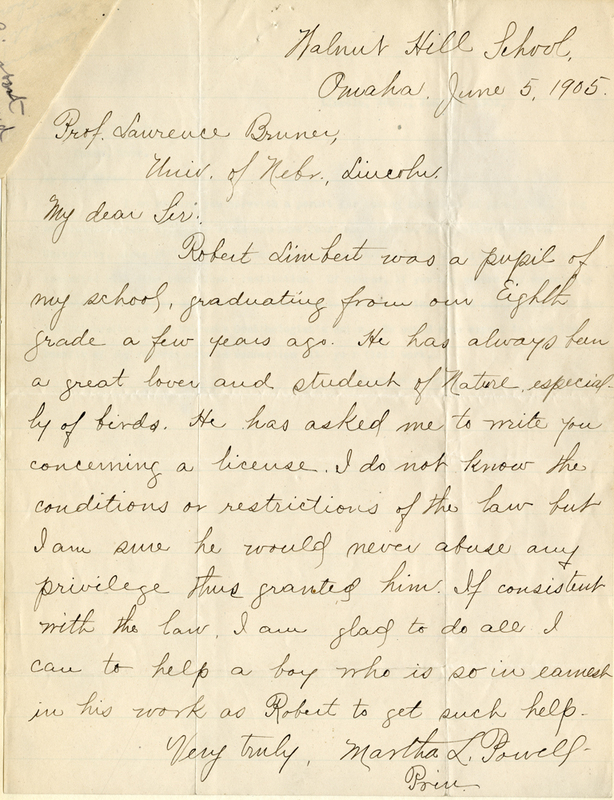 Walnut Hill School,
Omaha. June 5, 1905.
Prof. Lawrence Bruner,
Univ. of Nebr., Lincoln.
My dear Sir:
Robert Limbert was a pupil of
my school, graduating from our Eighth
grade a few years ago. He has always been
a great lover and student of Nature, especial-
ly of birds. He has asked me to write you
concerning a license. I do not know the
conditions or restrictions of the law but
I am sure he would never abuse any
privilege thus granted him. If consistent
with the law, I am glad to do all I
can to help a boy who is so in earnest
in his work as Robert to get such help.
Very truly, Martha L. Powell-
Prin.
about